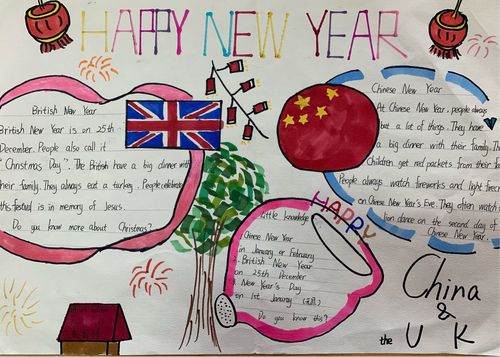 HAPPY NEW YEAR
British New Year
British New Year is on 25th
December. People also call it
"Christmas Day". The British have a big dinner with
their family. They always eat a turkey. People celebrate
this festival is in memory of Jesus.
Do you know more about Christmas?
Chinese New Year
At Chinese New Year, people always
but a lot of things. They have
a big dinner with their family.
Children get red packets from their
People always watch fireworks and light
on Chinese New Year's Eve. They often watch
lion dance on the second day of
Chinese New Year.
HAPPY
little knowledge
Chinese New Year
in January or February
British New Year
on 25th December
New Year's Day
on 1st January
Do you know this?
China
&
the U K